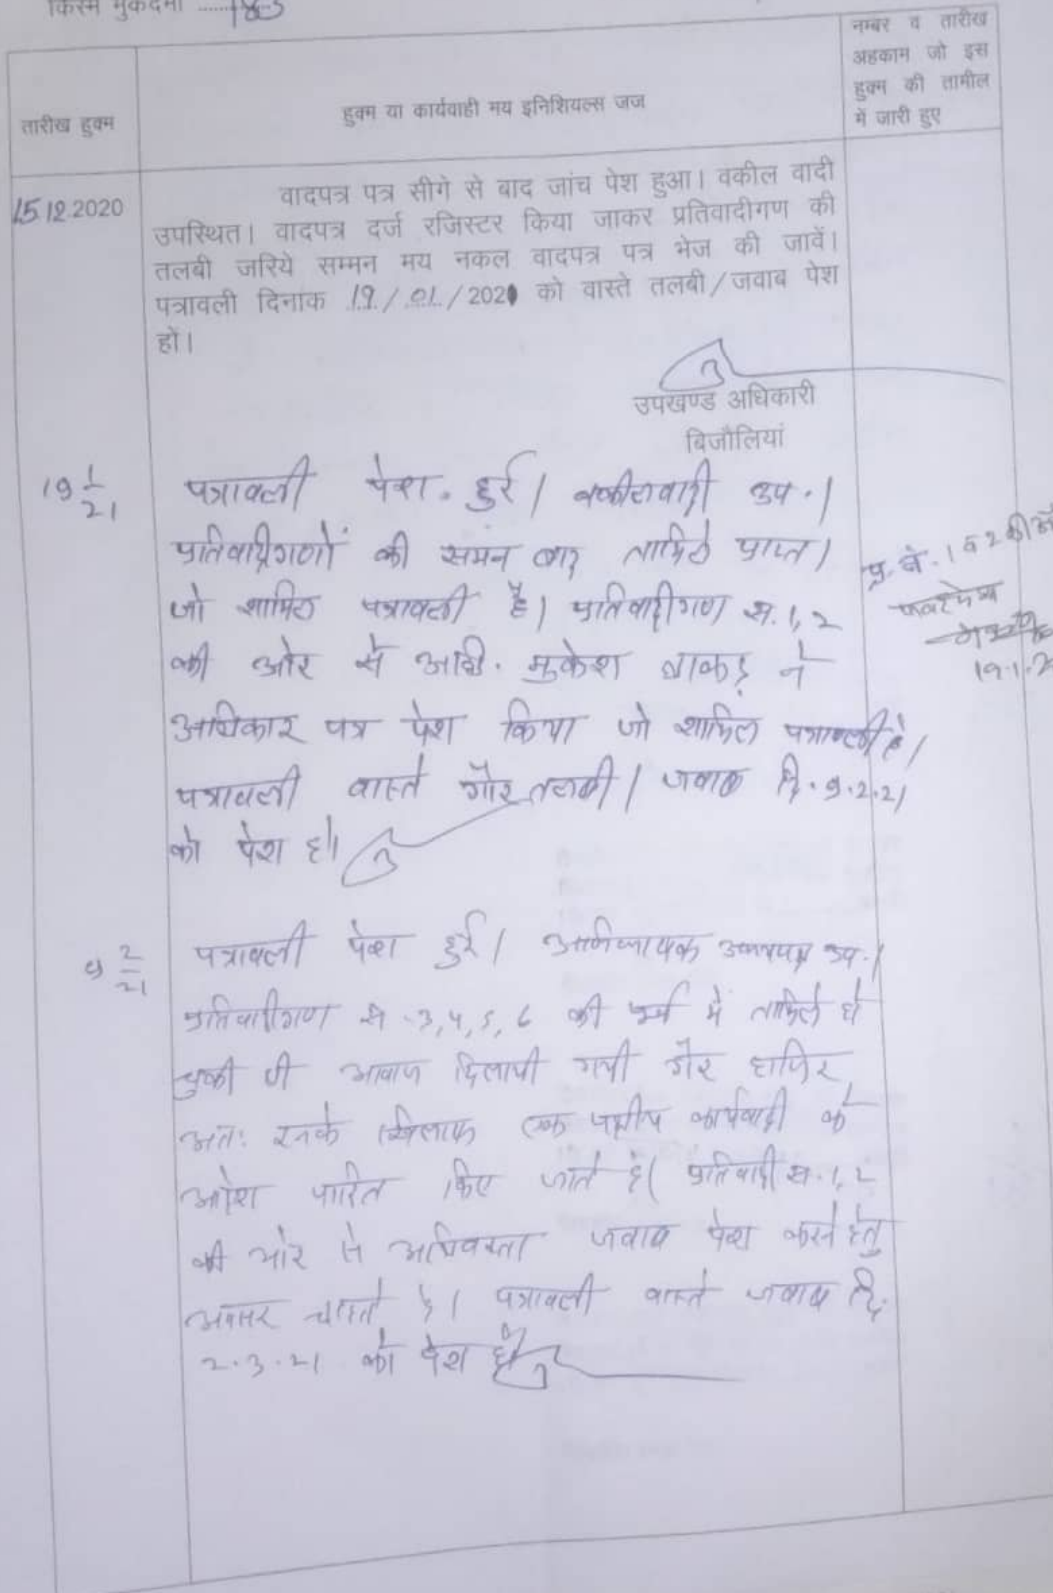 किस्म मुकदमा ........183
तारीख हुक्म
हुक्म या कार्यवाही मय इनिशियल्स जज
नम्बर व तारीख
अहकाम जो इस
हुक्म की तामील
में जारी हुए
15.12.2020
वादपत्र पत्र सीगे से बाद जांच पेश हुआ। वकील वादी
उपस्थित। वादपत्र दर्ज रजिस्टर किया जाकर प्रतिवादीगण की
तलबी जरिये सम्मन मय नकल वादपत्र पत्र भेज की जावें।
पत्रावली दिनाक 19/01/2021 को वास्ते तलबी/जवाब पेश
हो।
उपखण्ड अधिकारी
बिजौलियां
19 1/21
पत्रावली पेश. हुई। वकील वादी उप.।
प्रतिवादीगणों की समन बाद तामिले प्राप्त।
जो शामिल पत्रावली है। प्रतिवादीगण स. 1, 2
की ओर से अधि. मुकेश धाकड़ ने
अधिकार पत्र पेश किया जो शामिल पत्रावली है।
पत्रावली वास्ते गौर तलबी। जवाब दि. 9.2.21
को पेश हो।
प्र. वे. 1 व 2 की ओर
19.1.2
9 2/21
पत्रावली पेश हुई। अभिभाषक उभयपक्ष उप.।
प्रतिवादीगण स. 3, 4, 5, 6 की पूर्व में तामिले हो
चुकी थी आवाज दिलायी गयी गैर हाजिर,
अतः इनके खिलाफ एक पक्षीय कार्यवाही के
आदेश पारित किए जाते है। प्रतिवादी स. 1, 2
की ओर से अधिवक्ता जवाब पेश करने हेतु
अवसर चाहते है। पत्रावली वास्ते जवाब दि.
2.3.21 को पेश हो